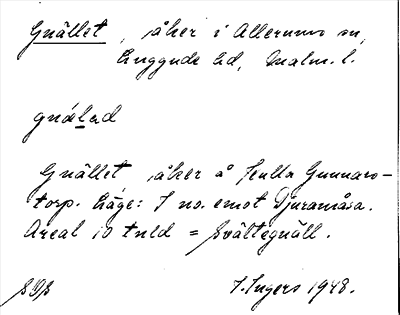 Gnället, åker i Allerums sn,
Luggude hd, Malm. l.
gnälad
Gnället åker å Gunnars-
torp. Läge: I no. emot Djuramåsa.
Areal 10 tnld = Svältegnäll.
I. Ingers 1948.